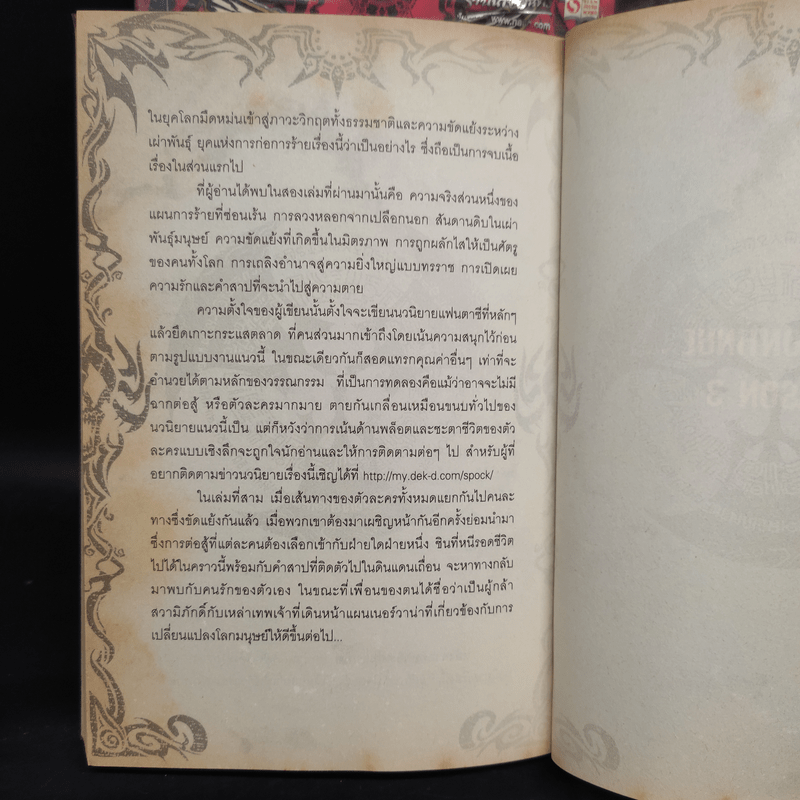 ในยุคโลกมืดหม่นเข้าสู่ภาวะวิกฤตทั้งธรรมชาติและความขัดแย้งระหว่าง
เผ่าพันธุ์ ยุคแห่งการก่อการร้ายเรื่องนี้ว่าเป็นอย่างไร ซึ่งถือเป็นการจบเนื้อ
เรื่องในส่วนแรกไป
ที่ผู้อ่านได้พบในสองเล่มที่ผ่านมานั้นคือ ความจริงส่วนหนึ่งของ
แผนการร้ายที่ซ่อนเร้น การลวงหลอกจากเปลือกนอก สันดานดิบในเผ่า
พันธุ์มนุษย์ ความขัดแย้งที่เกิดขึ้นในมิตรภาพ การถูกผลักไสให้เป็นศัตรู
ของคนทั้งโลก การเถลิงอำนาจสู่ความยิ่งใหญ่แบบทรราช การเปิดเผย
ความรักและคำสาปที่จะนำไปสู่ความตาย
ความตั้งใจของผู้เขียนนั้นตั้งใจจะเขียนนวนิยายแฟนตาซีที่หลักๆ
แล้วยึดเกาะกระแสตลาด ที่คนส่วนมากเข้าถึงโดยเน้นความสนุกไว้ก่อน
ตามรูปแบบงานแนวนี้ ในขณะเดียวกันก็สอดแทรกคุณค่าอื่นๆ เท่าที่จะ
อำนวยได้ตามหลักของวรรณกรรม ที่เป็นการทดลองคือแม้ว่าอาจจะไม่มี
ฉากต่อสู้ หรือตัวละครมากมาย ตายกันเกลื่อนเหมือนขนบทั่วไปของ
นวนิยายแนวนี้เป็น แต่ก็หวังว่าการเน้นด้านพล็อตและชะตาชีวิตของตัว
ละครแบบเชิงลึกจะถูกใจนักอ่านและให้การติดตามต่อๆ ไป สำหรับผู้ที่
อยากติดตามข่าวนวนิยายเรื่องนี้เชิญได้ที่ http://my.dek-d.com/spock/
ในเล่มที่สาม เมื่อเส้นทางของตัวละครทั้งหมดแยกกันไปคนละ
ทางซึ่งขัดแย้งกันแล้ว เมื่อพวกเขาต้องมาเผชิญหน้ากันอีกครั้งย่อมนำมา
ซึ่งการต่อสู้ที่แต่ละคนต้องเลือกเข้ากับฝ่ายใดฝ่ายหนึ่ง ชินที่หนีรอดชีวิต
ไปได้ในคราวนี้พร้อมกับคำสาปที่ติดตัวไปในดินแดนเถื่อน จะหาทางกลับ
มาพบกับคนรักของตัวเอง ในขณะที่เพื่อนของตนได้ชื่อว่าเป็นผู้กล้า
สวามิภักดิ์กับเหล่าเทพเจ้าที่เดินหน้าแผนเนอร์วาน่าที่เกี่ยวข้องกับการ
เปลี่ยนแปลงโลกมนุษย์ให้ดีขึ้นต่อไป...